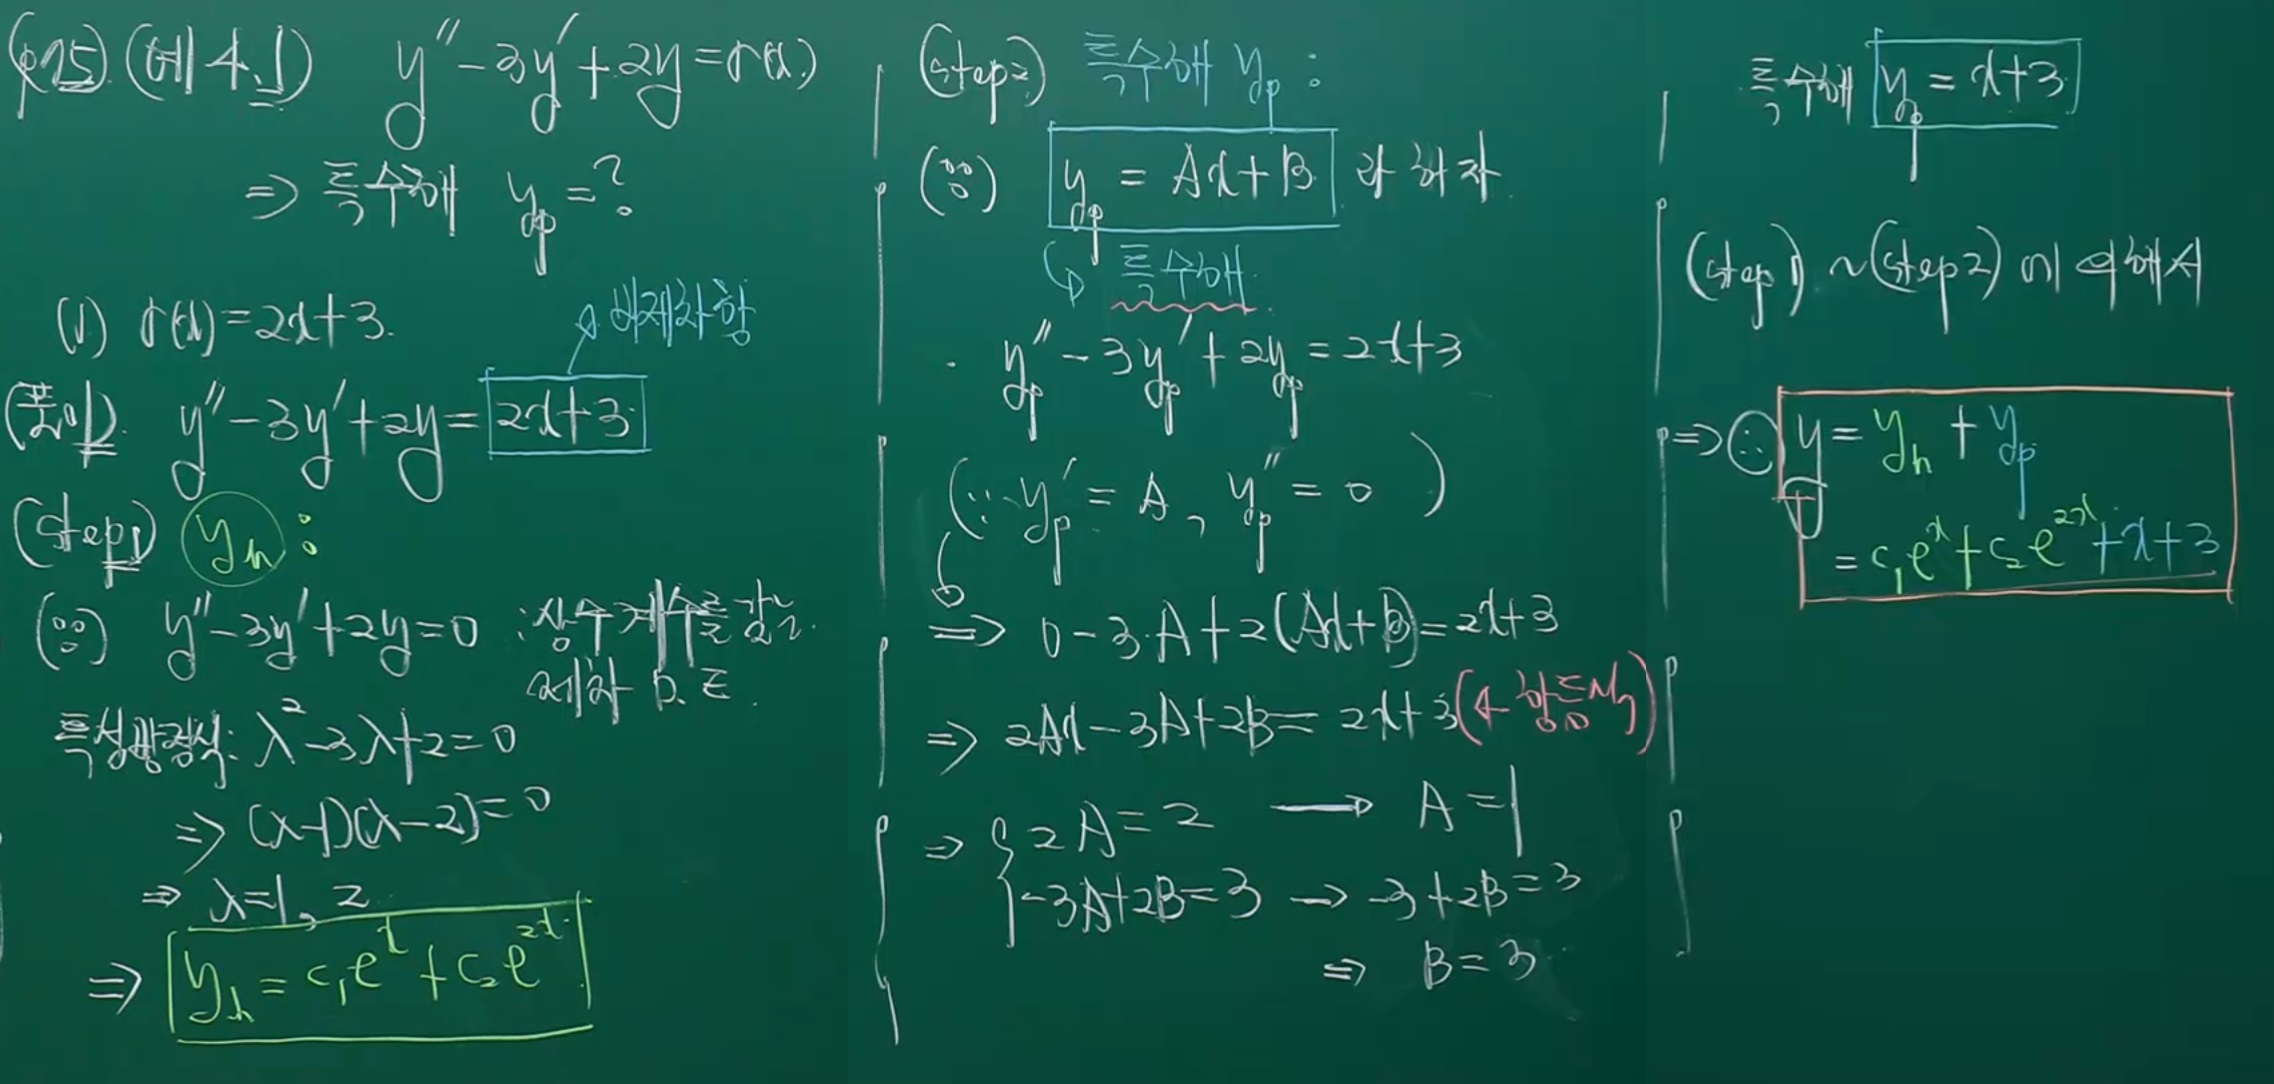 (p15) (예 4.1) y'' - 3y' + 2y = r(x)
⇒ 특수해 y_p = ?
(1) r(x) = 2x+3.
비제차항
(풀이) y'' - 3y' + 2y = 2x+3
(Step1) y_h :
(∵) y'' - 3y' + 2y = 0 : 상수계수를 갖는
제차 D.E.
특성방정식: λ² - 3λ + 2 = 0
⇒ (λ-1)(λ-2) = 0
⇒ λ = 1, 2
⇒ y_h = c₁e^x + c₂e^{2x}
(Step2) 특수해 y_p :
(∵) y_p = Ax+B 라 하자
특수해
· y_p'' - 3y_p' + 2y_p = 2x+3
(∵ y_p' = A, y_p'' = 0)
⇒ 0 - 3·A + 2(Ax+B) = 2x+3
⇒ 2Ax - 3A + 2B = 2x+3 (← 항등식)
⇒ { 2A = 2 → A = 1
-3A+2B = 3 → -3+2B = 3
⇒ B = 3
특수해 y_p = x+3
(Step1) ~ (Step2)에 의해서
⇒ ∴ y = y_h + y_p
= c₁e^x + c₂e^{2x} + x + 3